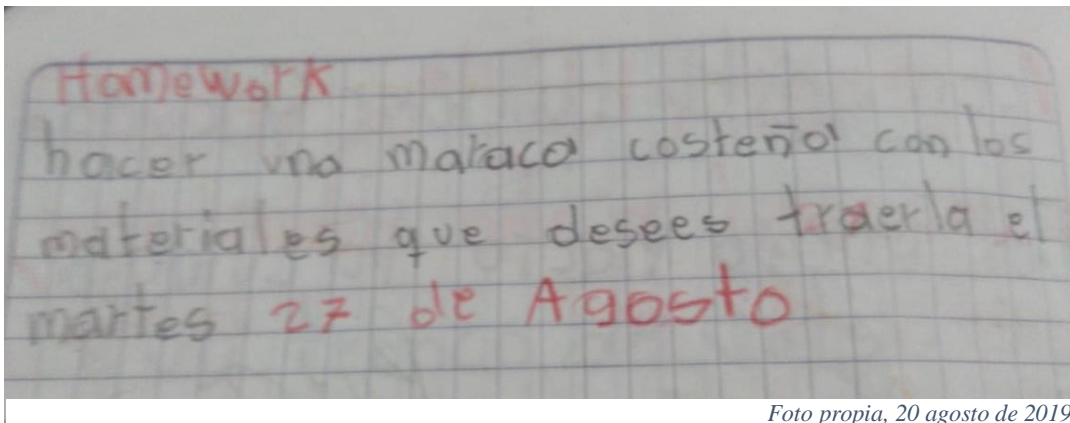 Homework
hacer una maraca costeña con los
materiales que desees traerla el
martes 27 de Agosto
Foto propia, 20 agosto de 2019